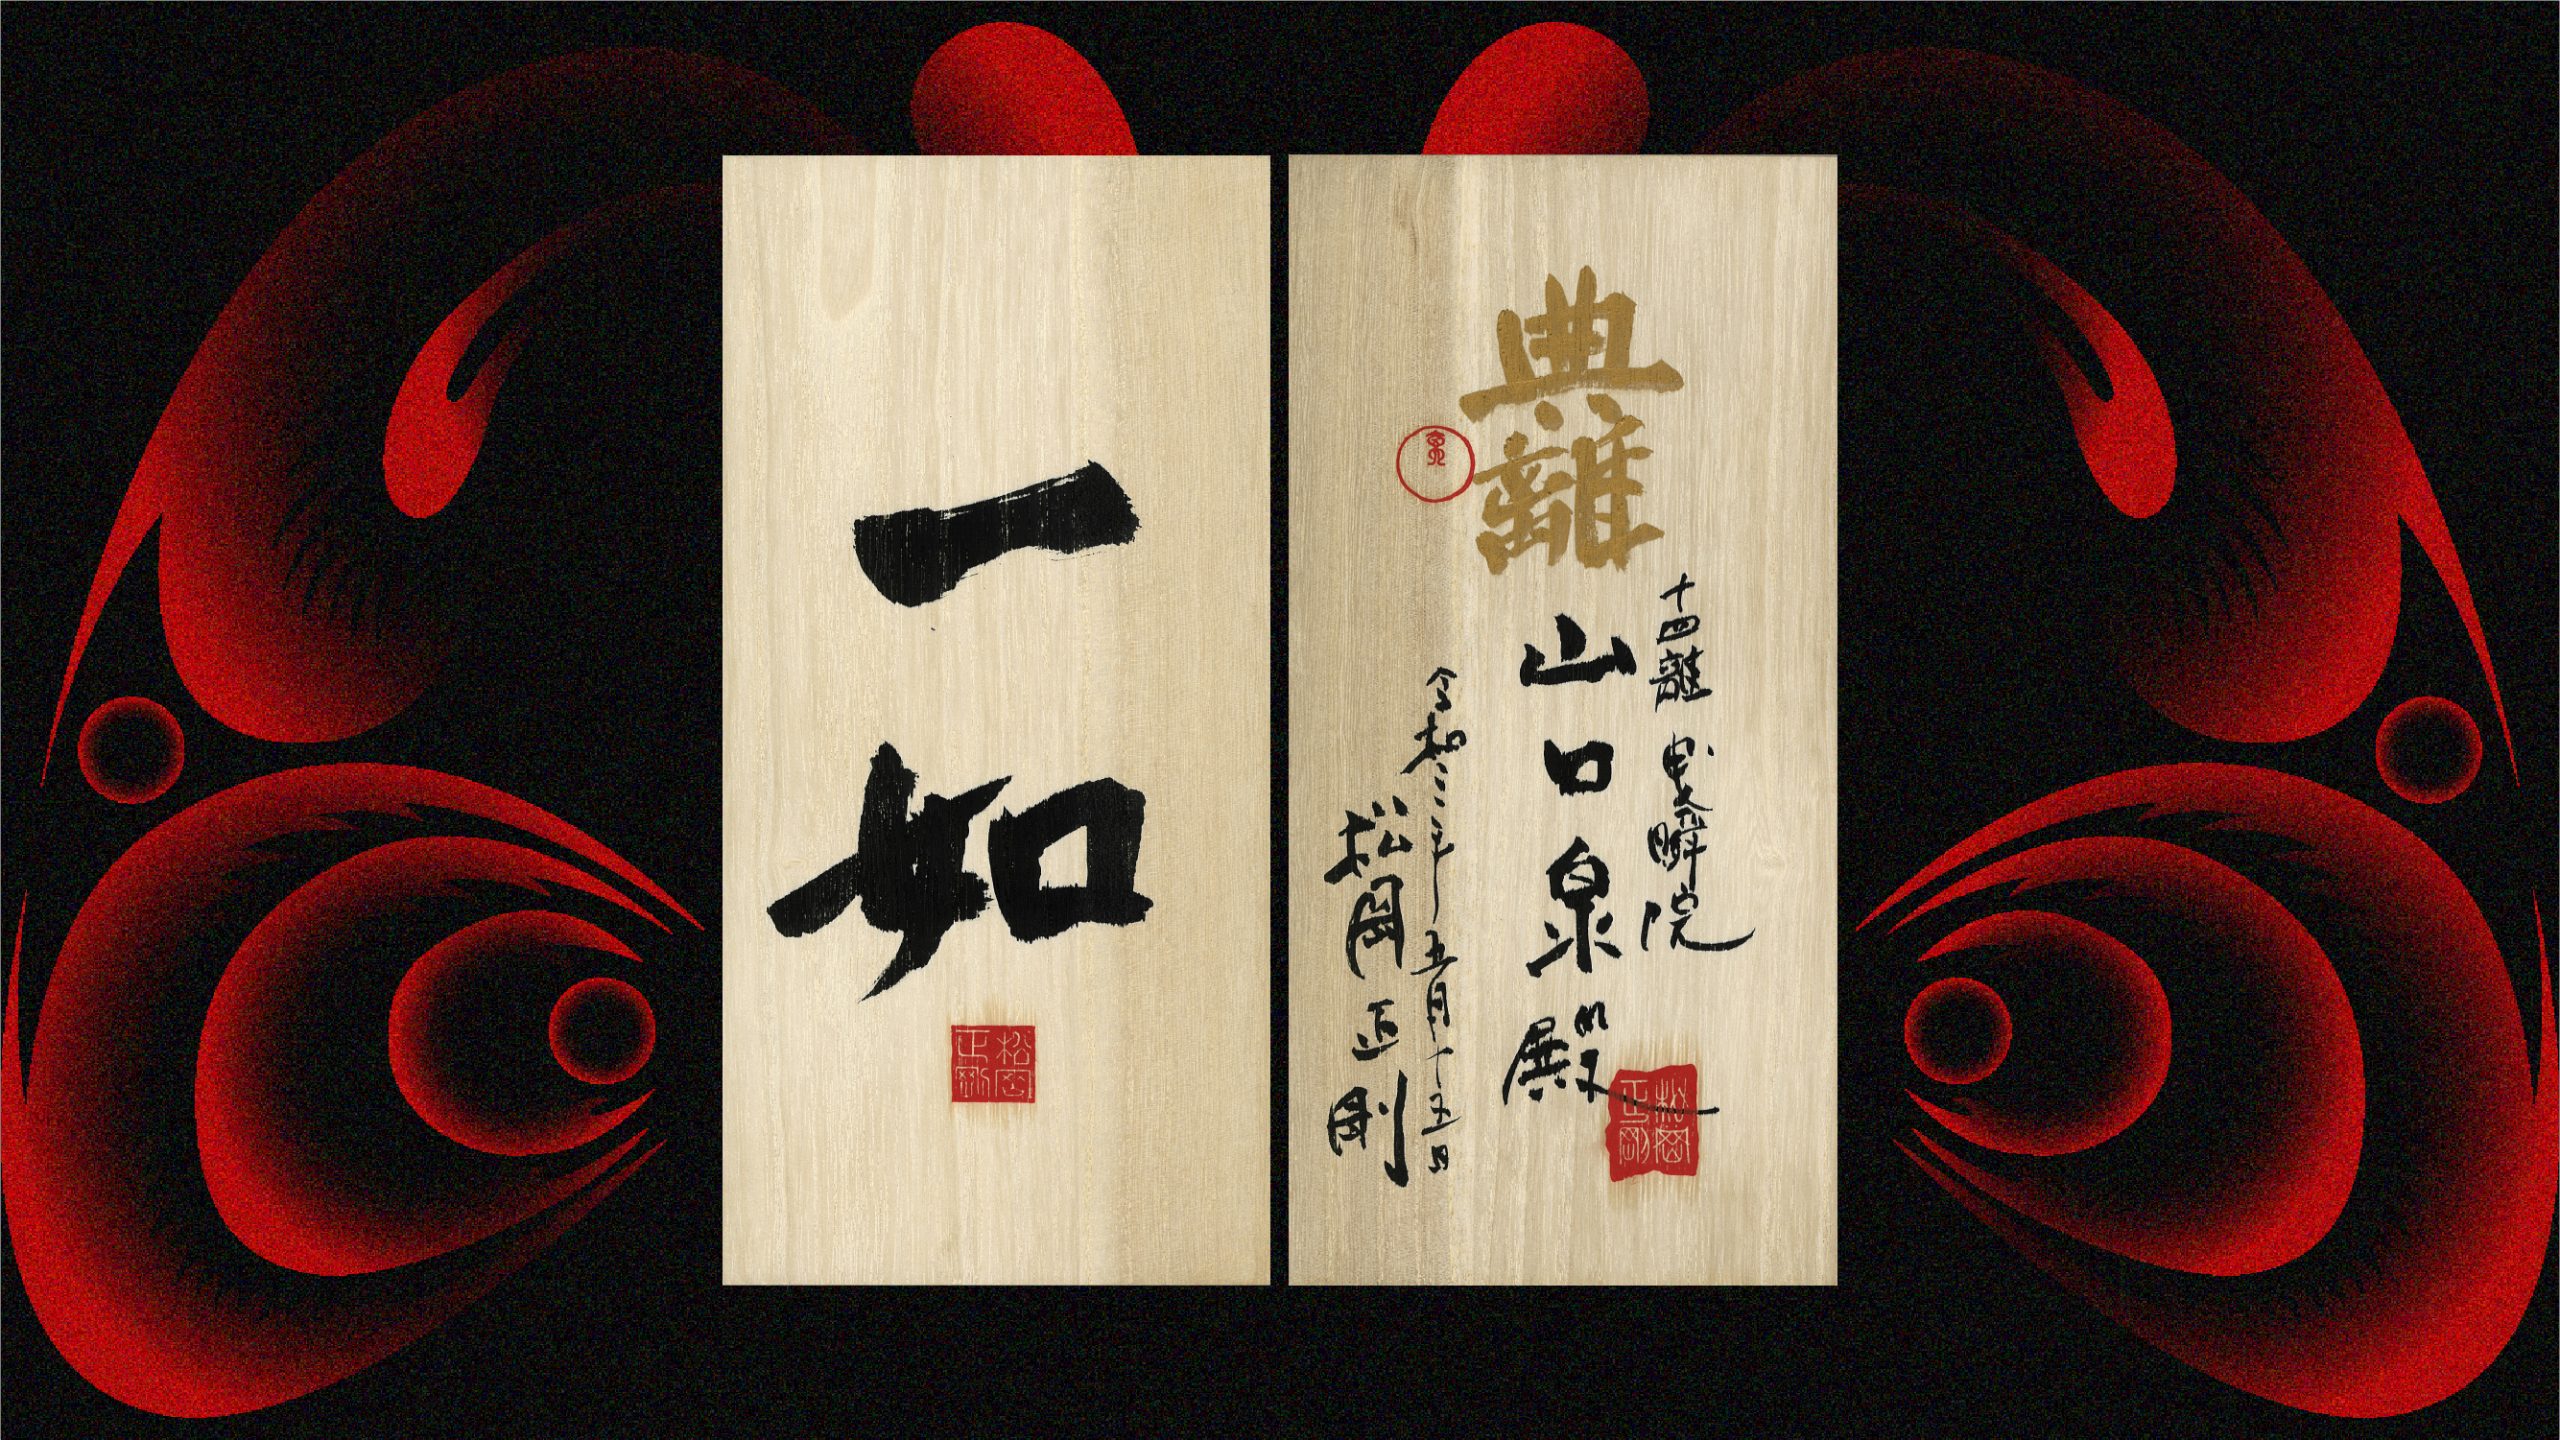 一如
松岡正剛
典離
十四離 瞬院
山口泉殿
令和三年五月十五日
松岡正剛
松岡正剛